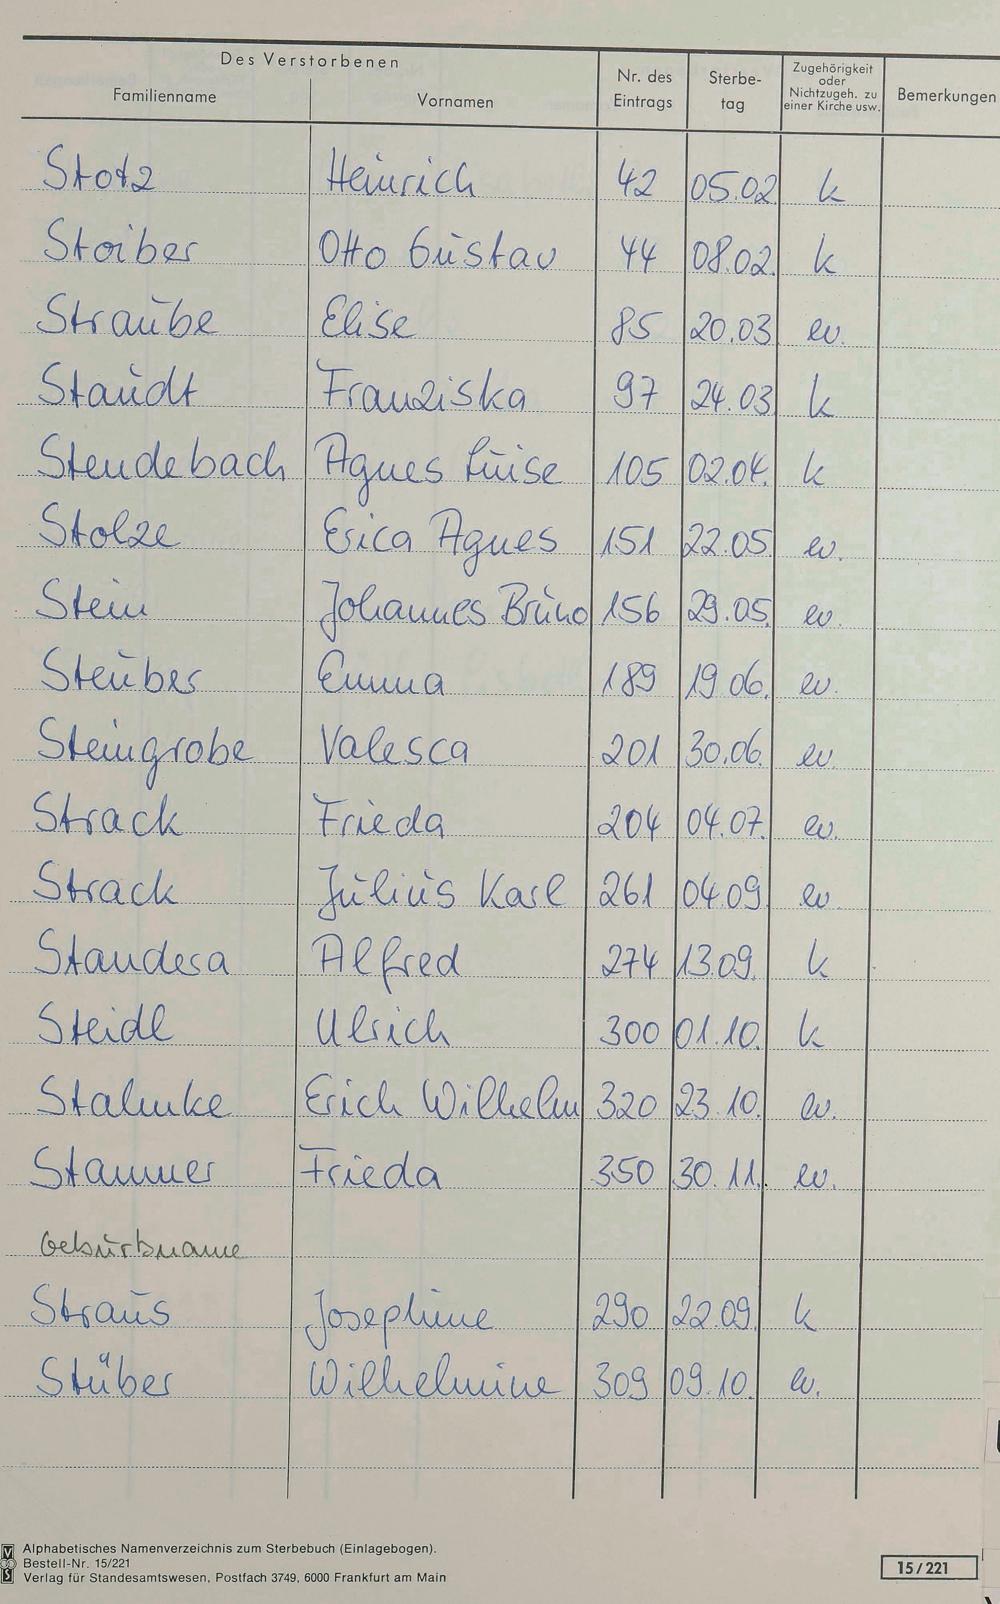 Des Verstorbenen
Familienname Vornamen Nr. des Eintrags Sterbe-tag Zugehörigkeit oder Nichtzugeh. zu einer Kirche usw. Bemerkungen
Stotz Heinrich 42 05.02 k
Stoiber Otto Gustav 44 08.02. k
Straube Elise 85 20.03 ev.
Staudt Franziska 97 24.03 k
Steudebach Agnes Luise 105 02.04. k
Stolze Erica Agnes 151 22.05 ev.
Stein Johannes Bruno 156 29.05. ev.
Steuber Emma 189 19.06. ev.
Steingrobe Valesca 201 30.06. ev.
Strack Frieda 204 04.07. ev.
Strack Julius Karl 261 04.09. ev.
Standera Alfred 274 13.09. k
Steidl Ulrich 300 01.10. k
Stahnke Erich Wilhelm 320 23.10. ev.
Stammer Frieda 350 30.11. ev.
Geburtsname
Straus Josephine 290 22.09. k
Stüber Wilhelmine 309 09.10. ev.
Alphabetisches Namenverzeichnis zum Sterbebuch (Einlagebogen).
Bestell-Nr. 15/221
Verlag für Standesamtswesen, Postfach 3749, 6000 Frankfurt am Main
15/221